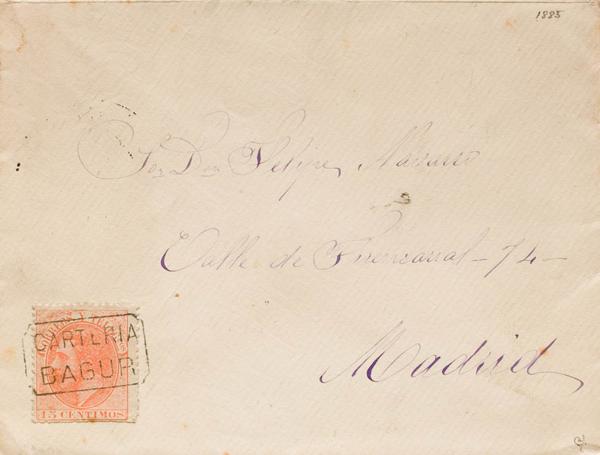 1885
Sor Don Felipe Navarro
Calle de Fuencarral - 74 -
Madrid
CARTERIA
BAGUR
15 CENTIMOS